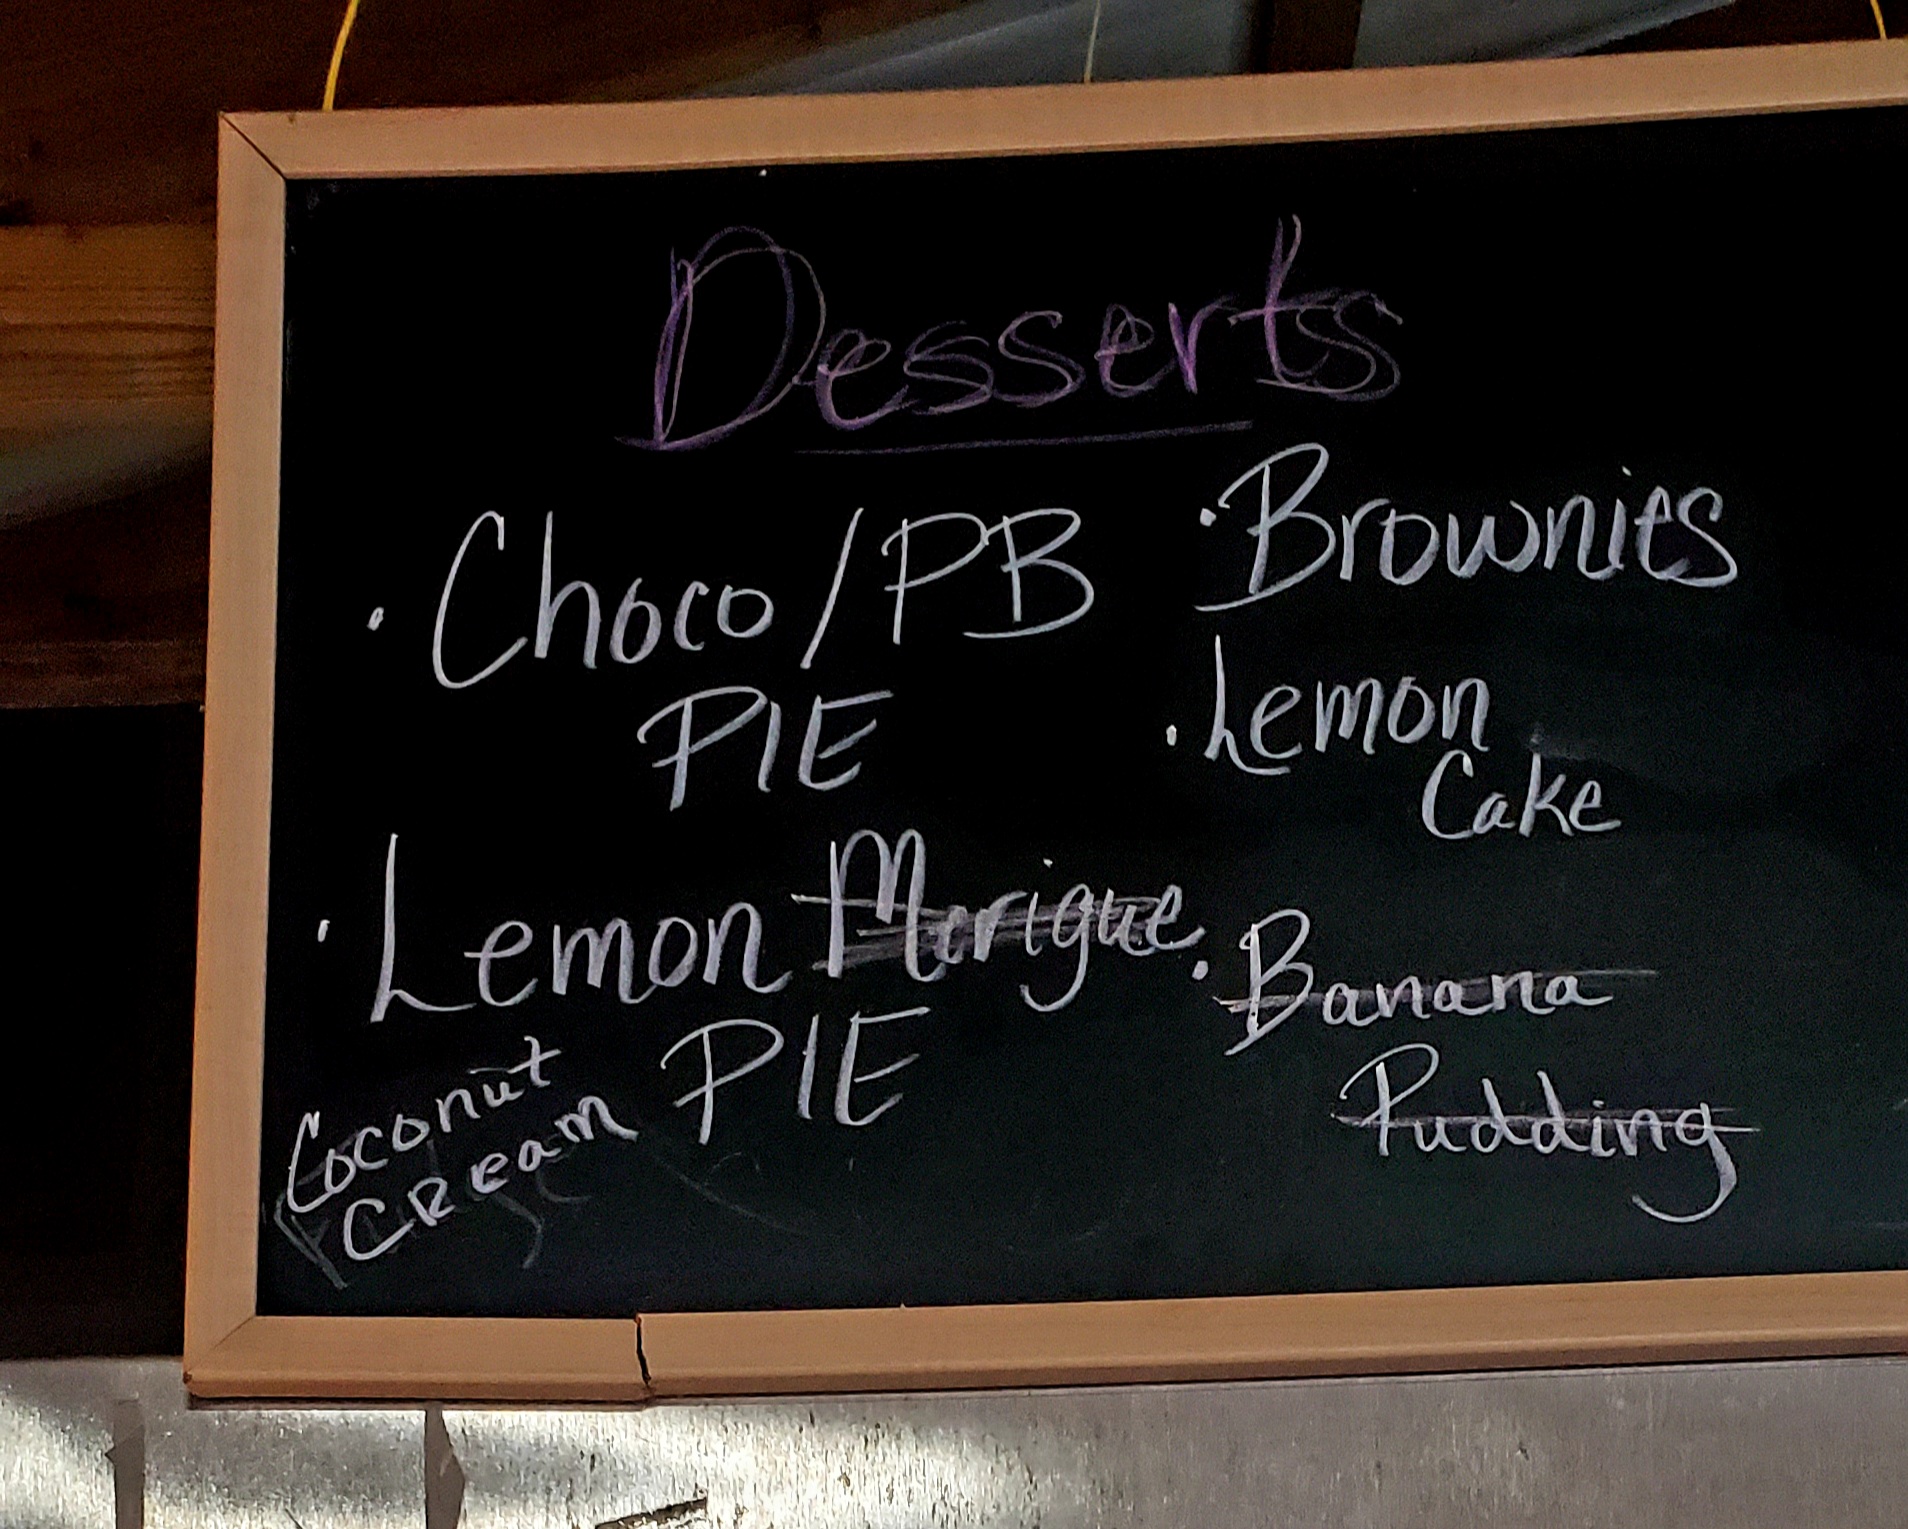 Desserts
· Choco/PB
PIE
· Lemon Merigue
PIE
Coconut
CReam
· Brownies
· Lemon
Cake
· Banana
Pudding